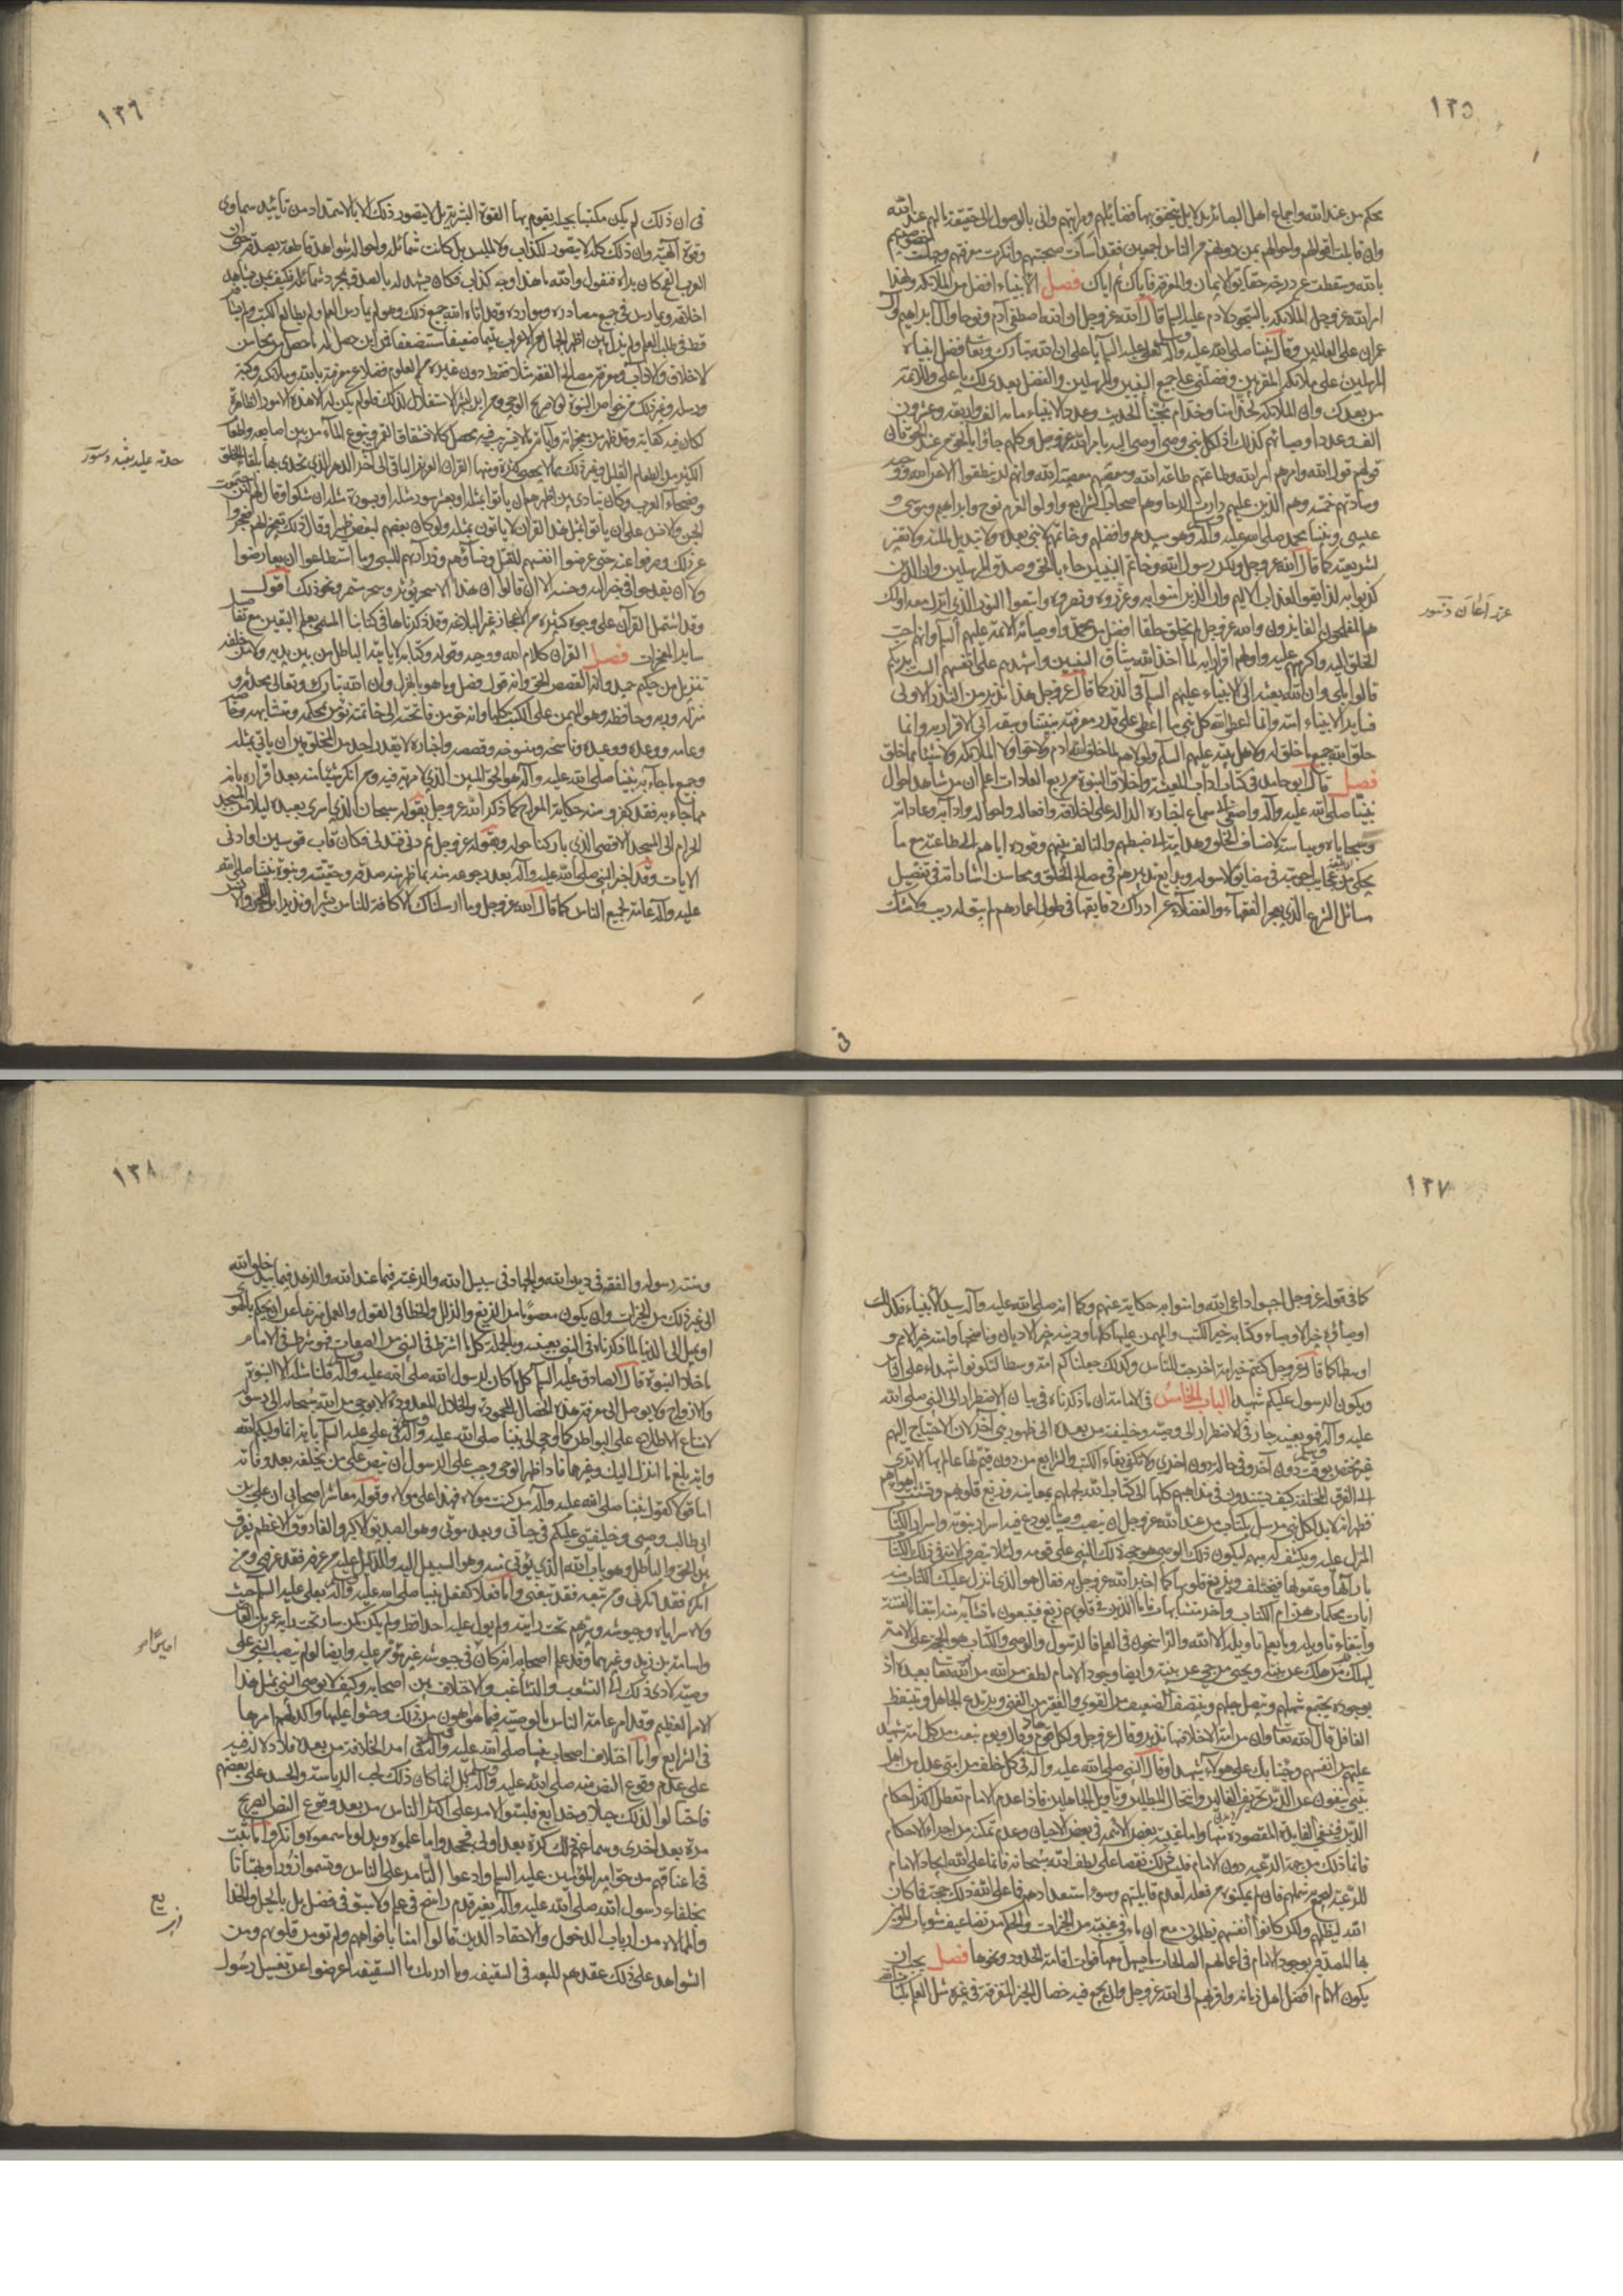 ١٢٥
محكم من عند الله واجماع اهل البصائر بل لا يتحقق بها فضايلهم ومراتبهم وانى بالوصول الى حقيقة مالهم عند الله
وان قابلت اقوالهم واحوالهم بمن دونهم من الناس اجمعين فقد اسأت صحبتهم وانكرت معرفتهم وجهلت خصوصيتهم
بالله وسقطت عن درجة حقايق الايمان والمعرفة فاياك ثم اياك فصل الانبياء افضل من الملائكة ولهذا
امر الله عز وجل الملائكة بالسجود لادم عليه السلم قال الله عز وجل ان الله اصطفى آدم ونوحا وآل ابراهيم وآل
عمران على العالمين وقال نبينا صلى الله عليه وآله لعلي عليه السلم يا علي ان الله تبارك وتعالى فضل انبياءه
المرسلين على ملائكته المقربين وفضلني على جميع النبيين والمرسلين والفضل بعدي لك يا علي وللائمة
من بعدك وان الملائكة لخدامنا وخدام محبينا الحديث وعدد الانبياء مائة الف واربعة وعشرون
الف وعدد اوصيائهم كذلك اذ لكل نبي وصي اوصى اليه بامر الله عز وجل وكلهم جاؤا بالحق من عند الحق فان
قولهم قول الله وامرهم امر الله وطاعتهم طاعة الله ومعصيتهم معصية الله وانهم لم ينطقوا الا عن الله ووحيه
وسادتهم خمسة وهم الذين عليهم دارت الرحا وهم اصحاب الشرايع واولوا العزم نوح وابراهيم وموسى و
عيسى ونبينا محمد صلى الله عليه وآله وهو سيدهم وافضلهم وخاتمهم لا نبي بعده ولا تبديل لملته ولا تغيير
لشريعته كما قال الله عز وجل ولكن رسول الله وخاتم النبيين جاء بالحق وصدق المرسلين وان الذين
كذبوا به لذائقوا العذاب الاليم وان الذين امنوا به وعزروه ونصروه واتبعوا النور الذي انزل معه اولئك
هم المفلحون الفايزون والله عز وجل لم يخلق خلقا افضل من محمد واوصيائه الائمة عليهم السلم وانهم احب
الخلق اليه واكرمهم عليه واولهم اقرارا به لما اخذ الله ميثاق النبيين واشهدهم على انفسهم الست بربكم
قالوا بلى وان الله بعثه الى الانبياء عليهم السلم في الذر كما قال عز وجل هذا نذير من النذر الاولى
فساير الانبياء امته وانما اعطى الله كل نبي ما اعطى على قدر معرفته بنبينا وسبقه الى الاقرار به وانما
خلق الله جميع ما خلق له ولاهل بيته عليهم السلم ولولاهم لما خلق الله ادم ولا حوا ولا الملائكة ولا شيئا مما خلق
فصل قال ابو حامد في كتاب اداب المعيشة واخلاق النبوة من ربع العادات اعلم ان من شاهد احوال
نبينا صلى الله عليه وآله واصغى الى سماع اخباره الدالة على اخلاقه وافعاله واحواله وادابه وعاداته
وسجاياه وسياسته لاصناف الخلق وهدايته الى ضبطهم والتألف فيهم وقوده اياهم الى طاعته مع ما
يحكى من عجايب اجوبته في مضايق الاسولة وبدايع تدبيره في مصالح الخلق ومحاسن اشاراته في تفصيل
مسائل الشرع الذي يعجز الفقهاء والفضلاء عن ادراك دقايقها في طول اعمارهم لم يبق له ريب ولا شك
في
١٢٦
في ان ذلك لم يكن مكتسبا بحيلة يقوم بها القوة البشرية بل لا يتصور ذلك الا بالاستمداد من تأييد سماوي
وقوة الهية وان ذلك كله لا يتصور لكذاب ولا ملبس بل كانت شمائله واحواله شواهد قاطعة بصدقه حتى ان
العربي القح كان يراه فيقول والله ما هذا وجه كذاب فكان يشهد له بالصدق بمجرد شمائله فكيف بمن شاهد
اخلاقه ويمارس في جميع مصادره وموارده وقد اتاه الله جميع ذلك وهو امي لم يمارس العلم ولم يطالع الكتب ولم يسافر
قط في طلب العلم ولم يزل بين اظهر الجهال من الاعراب يتيما ضعيفا مستضعفا فمن اين حصل له ما حصل من محاسن
الاخلاق والاداب ومعرفة مصالح الفقه مثلا فقط دون غيره من العلوم فضلا عن معرفته بالله وملائكته وكتبه
ورسله وغير ذلك من خواص النبوة لولا صريح الوحي ومن اين لبشر الاستقلال لذلك فلو لم يكن له الا هذه الامور الظاهرة
لكان فيه كفاية وقد ظهر من معجزاته وآياته ما لا يستريب فيه محصل كانشقاق القمر ونبوع الماء من بين اصابعه واطعام
الكثير من الطعام القليل وغير ذلك مما لا يحصى كثرة ومنها القران العزيز الباقي الى آخر الدهر الذي تحدى بها بلغاء الخلق
وفصحاء العرب وكان ينادي بين اظهرهم ان ياتوا بمثله او بعشر سور مثله او بسورة مثله ان شكوا وقال لهم لئن اجتمعت
الجن والانس على ان ياتوا بمثل هذا القران لا ياتون بمثله ولو كان بعضهم لبعض ظهيرا وقال ذلك تعجيزا لهم فعجزوا
عن ذلك وصرفوا عنه حتى عرضوا انفسهم للقتل ونساءهم وذراريهم للسبي وما استطاعوا ان يعارضوا
ولا ان يقدحوا في جزالته وحسنه الا ان قالوا ان هذا الا سحر يؤثر وسحر مستمر ونحو ذلك اقول
وقد اشتمل القرآن على وجوه كثيرة من الاعجاز غير البلاغة وقد ذكرناها في كتابنا المسمى بعلم اليقين مع تفاصيل
ساير المعجزات فصل القران كلام الله ووحيه وقوله وكتابه لا يأتيه الباطل من بين يديه ولا من خلفه
تنزيل من حكيم حميد وانه القصص الحق وانه قول فصل وما هو بالهزل وان الله تبارك وتعالى محدثه و
منزله وربه وحافظه وهو المهيمن على الكتب كلها وانه حق من فاتحته الى خاتمته نؤمن بمحكمه ومتشابهه وخاصه
وعامه ووعده ووعيده وناسخه ومنسوخه وقصصه واخباره لا يقدر احد من المخلوقين ان ياتي بمثله
وجميع ما جاء به نبينا صلى الله عليه وآله هو الحق المبين الذي لا مرية فيه ومن انكر شيئا منه بعد اقراره بانه
مما جاء به فقد كفر ومنه حكاية المعراج كما ذكر الله عز وجل بقوله سبحان الذي اسرى بعبده ليلا من المسجد
الحرام الى المسجد الاقصى الذي باركنا حوله وبقوله عز وجل ثم دنى فتدلى فكان قاب قوسين او ادنى
الايات وقد اخبر النبي صلى الله عليه وآله بعد رجوعه منه بما ظهر منه صدقه وحقيته ونبوة نبينا صلى الله
عليه وآله عامة لجميع الناس كما قال الله عز وجل وما ارسلناك الا كافة للناس بشيرا ونذيرا بل للجن والانس
١٢٧
كما في قوله عز وجل اجيبوا داعي الله وامنوا به حكاية عنهم وكما انه صلى الله عليه وآله سيد الانبياء فكذلك
اوصياؤه خير الاوصياء وكتابه خير الكتب والمهيمن عليها كلها ودينه خير الاديان وناسخها وامته خير الامم و
اوسطها كما قال عز وجل كنتم خير امة اخرجت للناس وكذلك جعلناكم امة وسطا لتكونوا شهداء على الناس
ويكون الرسول عليكم شهيدا الباب الخامس في الامامة ان ما ذكرناه في بيان الاضطرار الى النبي صلى الله
عليه وآله فهو بعينه جار في الاضطرار الى وصيه وخليفته من بعده الى ظهور نبي آخر لان الاحتياج اليهم
غير مختص بوقت دون آخر وفي حال دون اخرى ولا يكفي بقاء الكتب والشرايع من دون قيم لها عالم بها الا ترى
الى الفرق المختلفة كيف يستندون في مذاهبهم كلها الى كتاب الله لجهلهم بمعانيه وزيغ قلوبهم وتشتت اهوائهم
فظهر انه لابد لكل نبي مرسل بكتاب من عند الله عز وجل ان ينصب وصيا يودع فيه اسرار نبوته واسرار الكتاب
المنزل عليه ويكشف له مبهمه ليكون ذلك الوصي هو حجة ذلك النبي على قومه ولئلا يتصرف الامة في ذلك الكتاب
بارائها وعقولها فتختلف ويزيغ قلوبها كما اخبر الله عز وجل به فقال هو الذي انزل عليك الكتاب منه
ايات محكمات هن ام الكتاب واخر متشابهات فاما الذين في قلوبهم زيغ فيتبعون ما تشابه منه ابتغاء الفتنة
وابتغاء تاويله وما يعلم تاويله الا الله والراسخون في العلم فالرسول والوصي والكتاب هم الحجة على الامة
ليهلك من هلك عن بينة ويحيى من حي عن بينة وايضا وجود الامام لطف من الله تعالى بعبيده اذ
بوجوده يجتمع شملهم ويتصل حبلهم وينتصف الضعيف من القوي والفقير من الغني ويرتدع الجاهل ويتيقظ
الغافل قال الله تعالى وان من امة الا خلا فيها نذير وقال عز وجل ولكل قوم هاد وقال ويوم نبعث من كل امة شهيدا
عليهم من انفسهم وجئنا بك على هؤلاء شهيدا وقال النبي صلى الله عليه وآله في كل خلف من امتي عدل من اهل
بيتي ينفون عن الدين تحريف الغالين وانتحال المبطلين وتاويل الجاهلين فاذا عدم الامام تعطل اكثر احكام
الدين فينتفي الفايدة المقصودة منها واما غيبة بعض الائمة في بعض الاحيان وعدم تمكنه من اجراء الاحكام
فانما ذلك من جهة الرعية دون الامام فليس ذلك نقصا على لطف الله سبحانه فانما على الله ايجاد الامام
للرعية ليجمع شملهم فان لم يمكنوه من فعله لعدم قابليتهم وسوء استعدادهم فما على الله في ذلك حجة فما كان
الله ليظلمهم ولكن كانوا انفسهم يظلمون مع ان ما في غيبته من الخيرات والحكم من تضاعيف مثوبات
بها المصدقين بوجود الامام في اعمالهم الصالحات ما يسهل معها فوات اقامة الحدود ونحوها فصل يجب ان
يكون الامام افضل اهل زمانه واقربهم الى الله عز وجل وان يجمع فيه خصال الخير المتفرقة في غيره مثل العلم بكتاب الله
١٢٨
وسنة رسوله والفقه في دين الله والجهاد في سبيل الله والرغبة فيما عند الله والزهد فيما بيد خلق الله
الى غير ذلك من الخيرات وان يكون معصوما من الزيغ والزلل والخطا في القول والعمل منزها عن ان يحكم بالهوى
او يميل الى الدنيا لما ذكرناه في النبي بعينه وبالجملة كل ما اشترط في النبي من الصفات فهو شرط في الامام
ما خلا النبوة قال الصادق عليه السلم كل ما كان لرسول الله صلى الله عليه وآله فلنا مثله الا النبوة
والازواج ولا يوصل الى معرفة هذه الخصال المحمودة والخلال المعدودة الا بوحي من الله سبحانه الى رسوله
لامتناع الاطلاع على البواطن كما اوحي الى نبينا صلى الله عليه وآله في علي عليه السلم باية انما وليكم الله
واية بلغ ما انزل اليك وغيرها فاذا ظهر الوحي وجب على الرسول ان ينص على من يخلفه بعد وفاته
اما قولا كقول نبينا صلى الله عليه وآله من كنت مولاه فهذا علي مولاه وقوله معاشر اصحابي ان علي بن
ابي طالب وصيي وخليفتي عليكم في حياتي وبعد موتي وهو الصديق الاكبر والفاروق الاعظم يفرق
بين الحق والباطل وهو باب الله الذي يؤتى منه وهو السبيل اليه والدليل عليه من عرفه فقد عرفني ومن
انكره فقد انكرني ومن تبعه فقد تبعني واما فعلا كفعل نبينا صلى الله عليه وآله بعلي عليه السلم حيث
ولاه سراياه وجيوشه وغيرهم تحت رايته ولم يول عليه احدا قط ولم يكن كمن سار تحت راية عمرو بن العاص
واسامة بن زيد وغيرهما وقد علم اصحابه انه كان في جيوشه غير مؤمر عليه وايضا لو لم ينصب النبي على
وصيه لادى ذلك الى التشعب والتشاغب والاختلاف بين اصحابه وكيف لا يوصي النبي بمثل هذا
الامر العظيم وقد امر عامة الناس بالوصية فيما هو اهون من ذلك وحثوا عليها واكد لهم امرها
في الشرايع واما اختلاف اصحاب نبينا صلى الله عليه وآله في امر الخلافة من بعده فلا دلالة فيه
على عدم وقوع النص منه صلى الله عليه وآله بل انما كان ذلك لحب الرياسة والحسد على بعضهم
فاحتالوا لذلك حيلا وخدايع فلبسوا الامر على اكثر الناس من بعد وقوع النص الصريح
مرة بعد اخرى وسماعهم ذلك كرة بعد اولى فجحدوا ما علموه وبدلوا ما سمعوه وانكروا ما ثبت
في اعناقهم من حق امير المؤمنين عليه السلم وادعوا التامر على الناس وتسموا زورا وبهتانا
بخلفاء رسول الله صلى الله عليه وآله بغير قدم راسخ في علم ولا سبق في فضل بل بالحيل والخدايع
والممالاة من ارباب الدخول والاحقاد الذين قالوا امنا بافواههم ولم تؤمن قلوبهم ومن
الشواهد على ذلك عقدهم للبيعة في السقيفة وما ادريك ما السقيفة اعرضوا عن تغسيل رسول